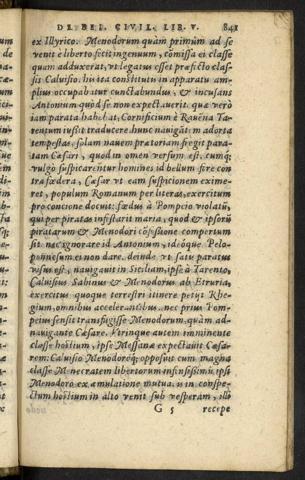 DE BEL. CIVIL. LIB. V. 841
ex Illyrico. Menodorum quàm primùm ad se
venit è liberto fecit ingenuum, cōmissa ei classe
quam adduxerat, vt legatus esset præfecto clas-
sis Caluisio. hic ita constitutis in apparatu am-
plius occupabatur cunctabundus, & incusans
Antonium quòd se non expectauerit. quæ verò
iam parata habebat, Cornificium è Rauēna Ta-
rentum iussit traducere. hunc nauigātem adorta
tempestas, solam nauem prætoriam fregit para-
tam Cæsari, quod in omen versum est. cumq;
vulgò suspicarentur homines id bellum fore con
tra fœdera, Cæsar vt eam suspicionem exime-
ret, populum Romanum per literas, exercitum
pro concione docuit: fœdus à Pompeio violatū,
qui per piratas infestarit maria, quod & ipsorū
piratarum & Menodori cōfessione compertum
sit: nec ignorare id Antonium, ideóque Pelo-
ponnesum ei non dare. deinde vt satis paratus
visus est, nauigauit in Siciliam, ipse à Tarento,
Caluisius Sabinus & Menodorus ab Etruria,
exercitus quoque terrestri itinere petijt Rhe-
gium, omnibus accelerantibus. nec prius Pom-
peius sensit transfugisse Menodorum, quàm ad-
nauigante Cæsare. Vtrinque autem imminente
classe hostium, ipse Messanæ expectauit Cæsa-
rem: Caluisio Menodoróq; opposuit cum magna
classe Menecratem libertorum infensissimū ipsi
Menodoro ex æmulatione mutua. is in conspe-
ctum hostium in alto venit sub vesperam, illi
G 5 recepe